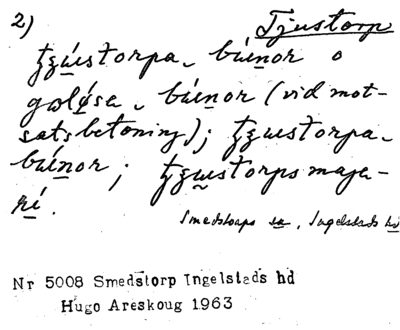 2) Tjustorp
ʈʒústorpa- búi̱nor o
gœlø̱sa - búi̱nor (vid mot-
satsbetoning); ʈʒustorpa-
búi̱nor; ʈʒu̱storpsmaja-
rí.
Smedstorps sn, Ingelstads hd
Nr 5008 Smedstorp Ingelstads hd
Hugo Areskoug 1963